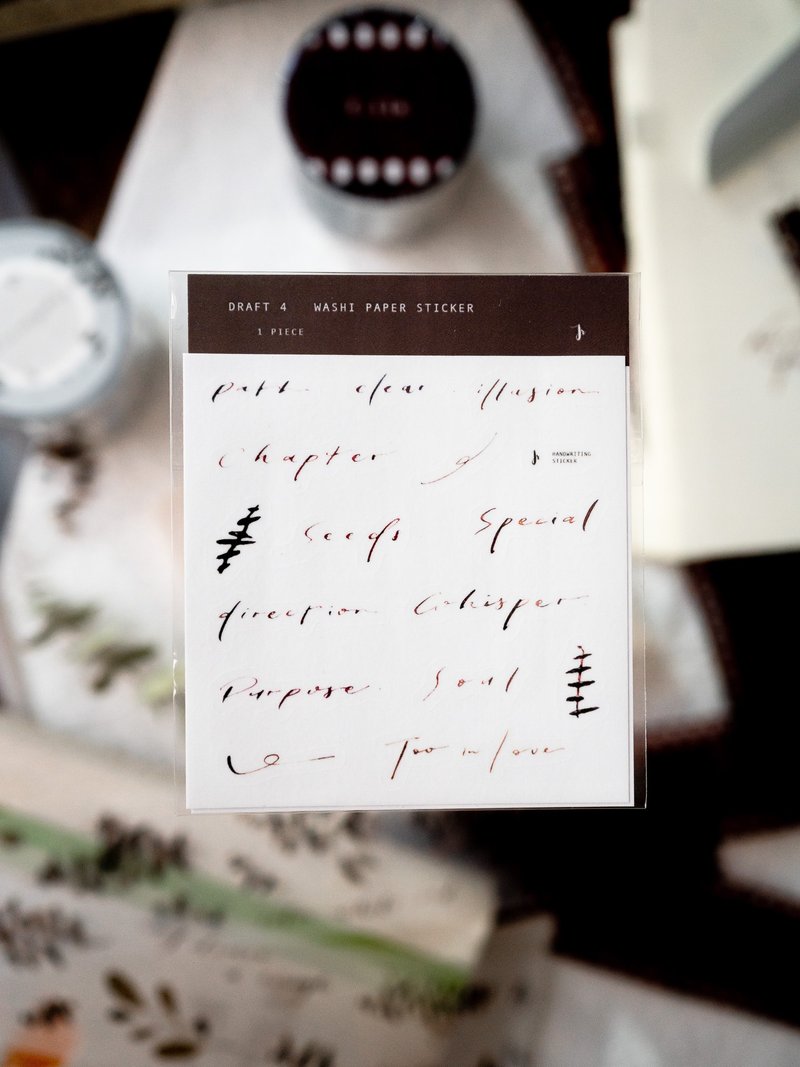 DRAFT 4 WASHI PAPER STICKER
1 PIECE
path clear illusion
Chapter
HANDWRITING
STICKER
Seeds Special
direction Whisper
Purpose Soul
Too in love